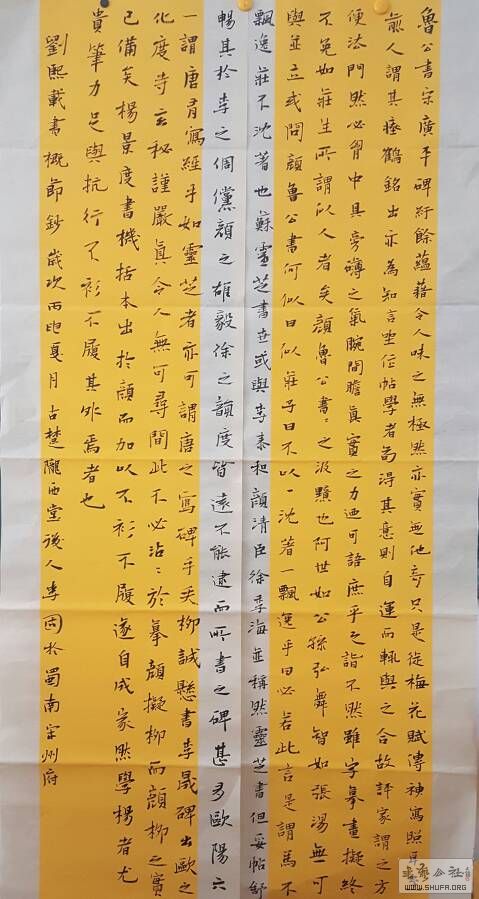 魯公書宋廣平碑紆餘蘊藉令人味之無極然亦實無他奇只是從梅花賦傳神寫照耳
前人謂其瘞鶴銘出亦為知言坐位帖學者苟得其意則自運而輒與之合故評家謂之方
便法門然必胷中具旁礴之氣腕間贍真實之力迺可語庶乎之詣不然雖字摹畫擬終
不免如莊生所謂似人者矣顏魯公書〻之汲黯也阿世如公孫弘舞智如張湯無可
與並立或問顏魯公書何似曰似莊子曰不以一沈著一飄逸乎曰必若此言是謂馬不
飄逸莊不沈著也蘇靈芝書世或與李泰和顏清臣徐季海並稱然靈芝書但妥帖舒
暢其於李之倜儻顏之雄毅徐之韻度皆遠不能逮而所書之碑甚多歐陽六
一謂唐有寫經手如靈芝者亦可謂唐之寫碑手矣柳誠懸書李晟碑出歐之
化度寺玄秘謹嚴真令人無可尋間此不必沾〻於摹顏擬柳而顏柳之實
已備矣楊景度書機括本出於顏而加以不衫不履遂自成家然學楊者尤
貴筆力足與抗行不衫不履其外焉者也
劉熙載書概節鈔歲次丙申夏月古楚隴西堂後人李固於蜀南州府
WWW.SHUFA.ORG